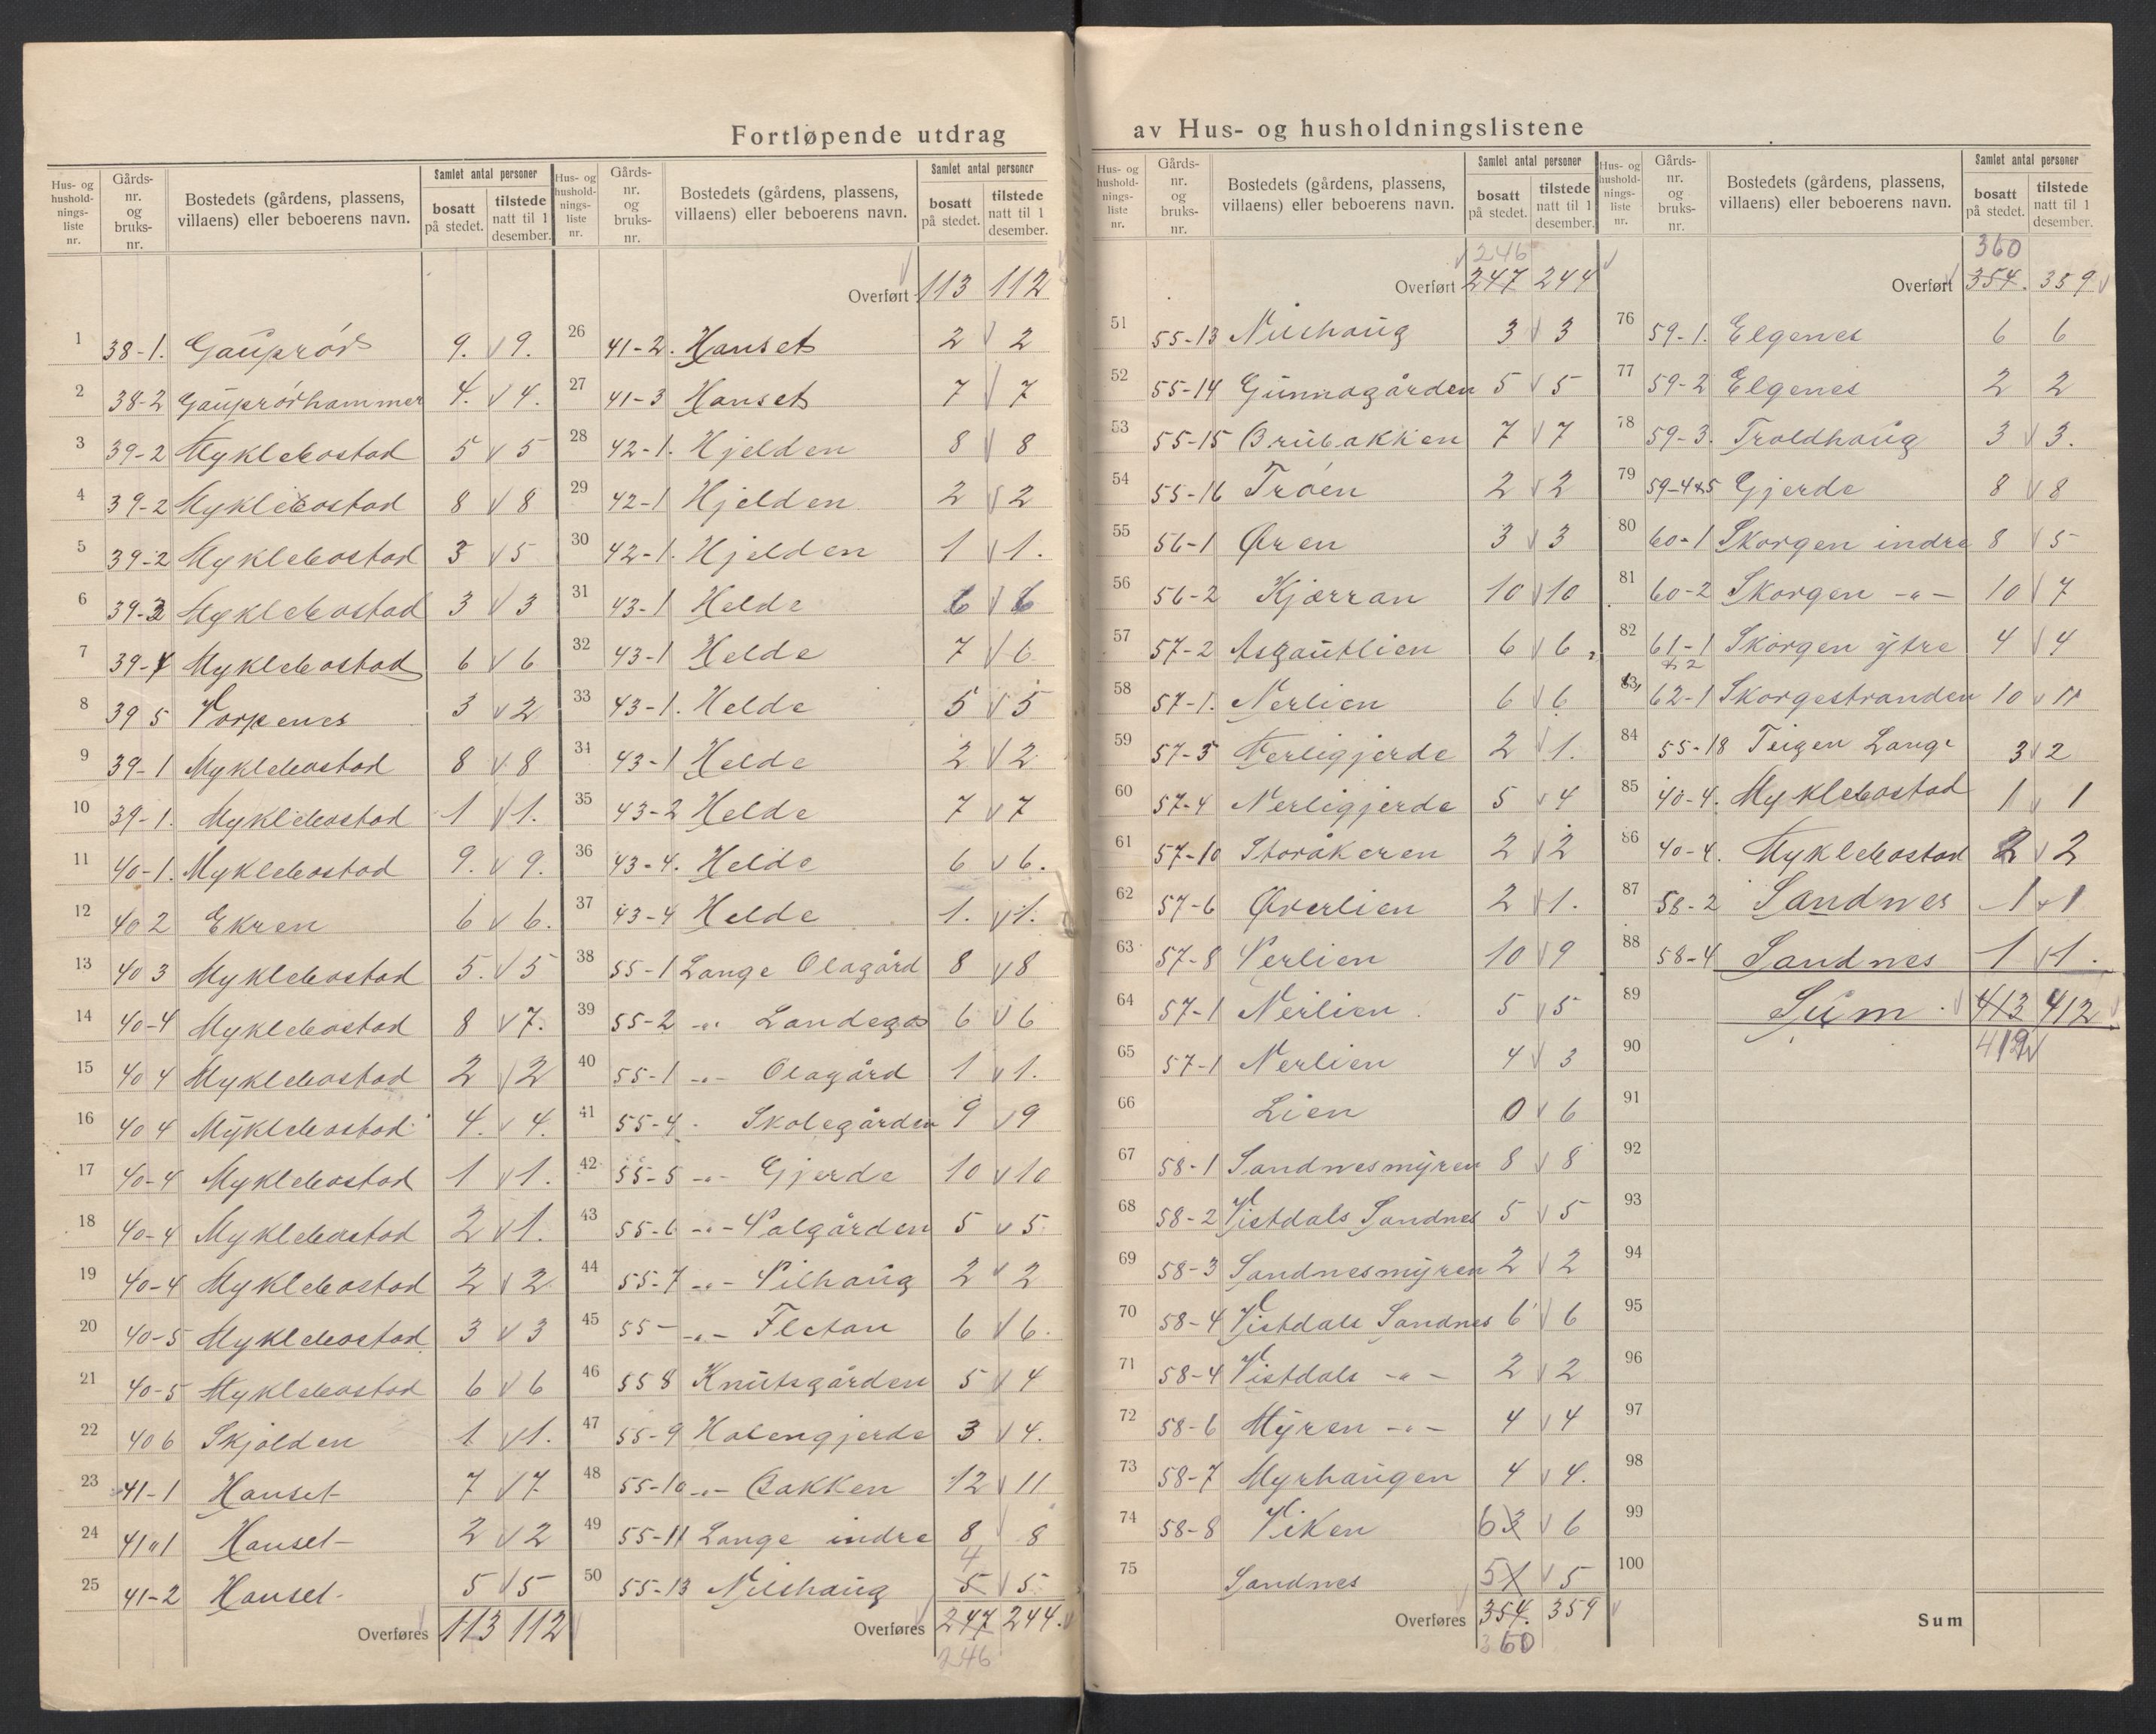 Fortløpende utdrag av Hus- og husholdningslistene
Hus- og hushold-nings-liste nr. Gårds-nr. og bruks-nr. Bostedets (gårdens, plassens, villaens) eller beboerens navn. Samlet antal personer bosatt på stedet. tilstede natt til 1 desember.
1 38-1. Gauprør 9. √ 9.
2 38-2 Gauprørhammer 4. √ 4.
3 39-2 Myklebostad 5 √ 5
4 39-2 Myklebostad 8 √ 8
5 39-2 Myklebostad 3 √ 5
6 39-2 Myklebostad 3 √ 3
7 39-4 Myklebostad 6 √ 6
8 39 5 Vorpenes 3 √ 2
9 39-1 Myklebostad 8 √ 8
10 39-1. Myklebostad 1 √ 1.
11 40-1. Myklebostad 9. √ 9.
12 40 2 Ekren 6 √ 6.
13 40 3 Myklebostad 5. √ 5
14 40-4 Myklebostad 8 √ 7.
15 40 4 Myklebostad 2 √ 2
16 40 4 Myklebostad 4. √ 4.
17 40-4 Myklebostad 1 √ 1.
18 40-4 Myklebostad 2 √ 1.
19 40-4 Myklebostad 2 √ 2.
20 40-5 Myklebostad 3 √ 3
21 40-5 Myklebostad 6 √ 6
22 40 6 Skjolden 1 √ 1.
23 41-1 Hanset 7 √ 7
24 41"1 Hanset 2 √ 2
25 41-2 Hanset 5 √ 5
Overføres 113 112 √
Hus- og hushold-nings-liste nr. Gårds-nr. og bruks-nr. Bostedets (gårdens, plassens, villaens) eller beboerens navn. Samlet antal personer bosatt på stedet. tilstede natt til 1 desember.
√ Overført 113 112 √
26 41-2. Hanset 2 √ 2
27 41-3 Hanset 7 √ 7
28 42-1. Hjelden 8 √ 8
29 42-1 Hjelden 2 √ 2
30 42-1. Hjelden 1 √ 1.
31 43-1 Helde 6 √ 6
32 43-1 Helde 7 √ 6
33 43-1. Helde 5 √ 5
34 43-1 Helde 2 √ 2
35 43-2 Helde 7 √ 7
36 43-4. Helde 6 √ 6.
37 43-4 Helde 1. √ 1.
38 55-1 Lange Olagård 8 √ 8
39 55-2 -"- Landegas 6 √ 6
40 55-1 -"- Olagård 1 √ 1.
41 55-4 - Skolegården 9 √ 9
42 55-5 -"- Gjerde 10 √ 10
43 55-6 -"- Palgården 5 √ 5
44 55-7 -"- Pilhaug 2 √ 2
45 55- -"- Fletan 6 √ 6.
46 55 8 Knutsgården 5 √ 4
47 55-9 Holengjerde 3 √ 4.
48 55-10 -"- Bakken 12 √ 11
49 55-11 Lange indre 8 √ 8
4
50 55-13 Nilshaug 5 √ 5
Overføres 247 244. √
246
Hus- og hushold-nings-liste nr. Gårds-nr. og bruks-nr. Bostedets (gårdens, plassens, villaens) eller beboerens navn. Samlet antal personer bosatt på stedet. tilstede natt til 1 desember.
√ 246
Overført 247 244 √
51 55-13 Nilshaug 3 √ 3
52 55-14 Gunnagården 5 √ 5
53 55-15 Brubakken 7 √ 7
54 55-16 Trøen 2 √ 2
55 56-1 Øren 3 √ 3
56 56-2 Kjørran 10 √ 10
57 57-2 Asgautlien 6 √ 6
58 57-1. Nerlien 6 √ 6
59 57-3 Nerligjerde 2 √ 1.
60 57-4 Nerligjerde 5 √ 4
61 57-10 Storåkeren 2 √ 2
62 57-6 Øverlien 2 √ 1.
63 57-8 Perlien 10 √ 9
64 57-1 Nerlien 5 √ 5
65 57-1 Nerlien 4 √ 3
66 Lien 0 √ 6
67 58-1 Sandnesmyren 8 √ 8
68 58-2 Vistdals Sandnes 5 √ 5
69 58-3 Sandnesmyren 2 √ 2
70 58-4 Vistdals Sandnes 6 √ 6
71 58-4 Vistdals -"- 2 √ 2
72 58-6 Myren -"- 4 √ 4
73 58-7 Myrhaugen 4 √ 4.
74 58-8 Viken 6 3 √ 6
75 Sandnes 5 1 √ 5
Overføres 354. 359 √
360
Hus- og hushold-nings-liste nr. Gårds-nr. og bruks-nr. Bostedets (gårdens, plassens, villaens) eller beboerens navn. Samlet antal personer bosatt på stedet. tilstede natt til 1 desember.
360
Overført √ 354. 359 √
76 59-1. Elgenes 6 6
77 59-2 Elgenes 2 2
78 59-3. Troldhaug 3 √ 3.
79 59-4&5 Gjerde 8 √ 8
80 60-1 Skorgen indre 8 √ 5
81 60-2 Skorgen -"- 10 √ 7
82 61-1 Skorgen ytre 4 √ 4
& 2
83 62-1 Skorgestranden 10 √ 11
84 55-18 Teigen Lange 3 √ 2
85 40-4. Myklebostad 1 √ 1
86 40-4. Myklebostad 2 √ 2
87 58-2 Sandnes 1 √ 1
88 58-4 Sandnes 1 √ 1.
89 Sum. √ 413 412 √
90 419 √
91
92
93
94
95
96
97
98
99
100
Sum